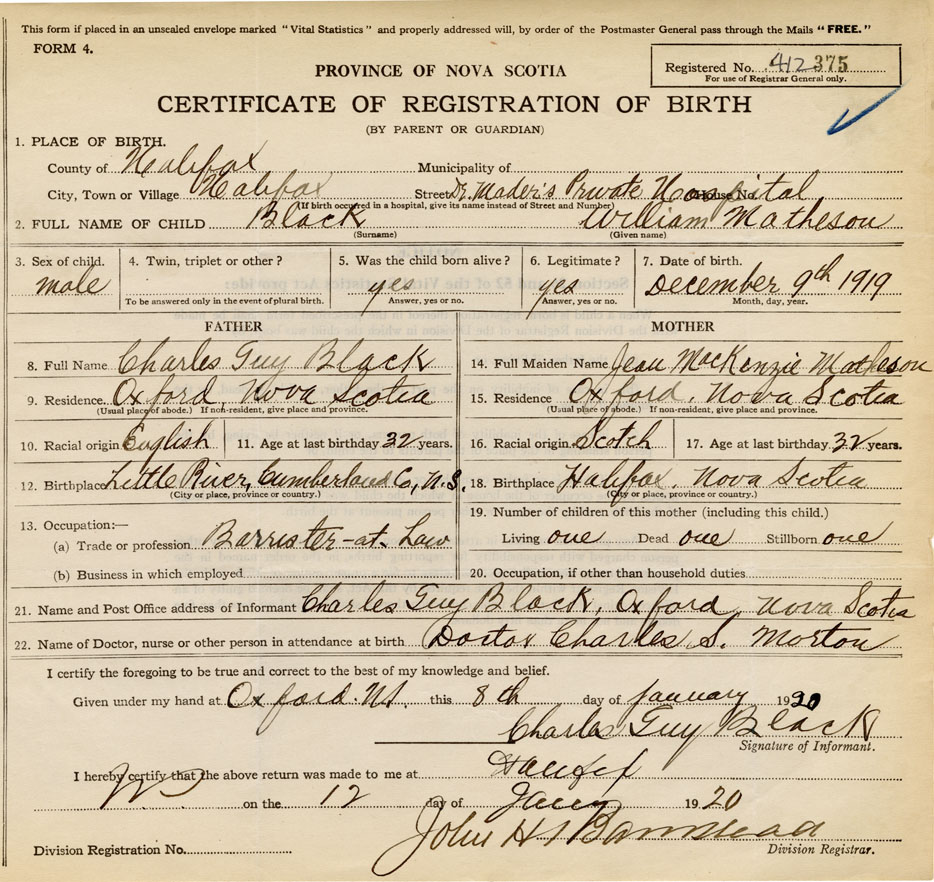 This form if placed in an unsealed envelope marked "Vital Statistics" and properly addressed will, by order of the Postmaster General pass through the Mails "FREE."
FORM 4.
Registered No. 412375
For use of Registrar General only.
PROVINCE OF NOVA SCOTIA
CERTIFICATE OF REGISTRATION OF BIRTH
(BY PARENT OR GUARDIAN)
1. PLACE OF BIRTH.
County of Halifax Municipality of
City, Town or Village Halifax Street Dr. Mader's Private Hospital House No.
(If birth occurred in a hospital, give its name instead of Street and Number)
2. FULL NAME OF CHILD Black William Matheson
(Surname) (Given name)
3. Sex of child. 4. Twin, triplet or other? 5. Was the child born alive? 6. Legitimate? 7. Date of birth.
male yes yes December 9th 1919
To be answered only in the event of plural birth. Answer, yes or no. Answer, yes or no. Month, day, year.
FATHER MOTHER
8. Full Name Charles Guy Black 14. Full Maiden Name Jean MacKenzie Matheson
9. Residence Oxford, Nova Scotia 15. Residence Oxford, Nova Scotia
(Usual place of abode.) If non-resident, give place and province. (Usual place of abode.) If non-resident, give place and province.
10. Racial origin English 11. Age at last birthday 32 years. 16. Racial origin Scotch 17. Age at last birthday 32 years.
12. Birthplace Little River, Cumberland Co, N.S. 18. Birthplace Halifax, Nova Scotia
(City or place, province or country.) (City or place, province or country.)
13. Occupation:— 19. Number of children of this mother (including this child.)
(a) Trade or profession Barrister-at-Law Living one Dead one Stillborn one
(b) Business in which employed 20. Occupation, if other than household duties
21. Name and Post Office address of Informant Charles Guy Black, Oxford, Nova Scotia
22. Name of Doctor, nurse or other person in attendance at birth Doctor Charles S. Morton
I certify the foregoing to be true and correct to the best of my knowledge and belief.
Given under my hand at Oxford. N.S. this 8th day of January 1920
Charles Guy Black
Signature of Informant.
I hereby certify that the above return was made to me at
on the 12 day of 1920
John H.
Division Registration No. Division Registrar.